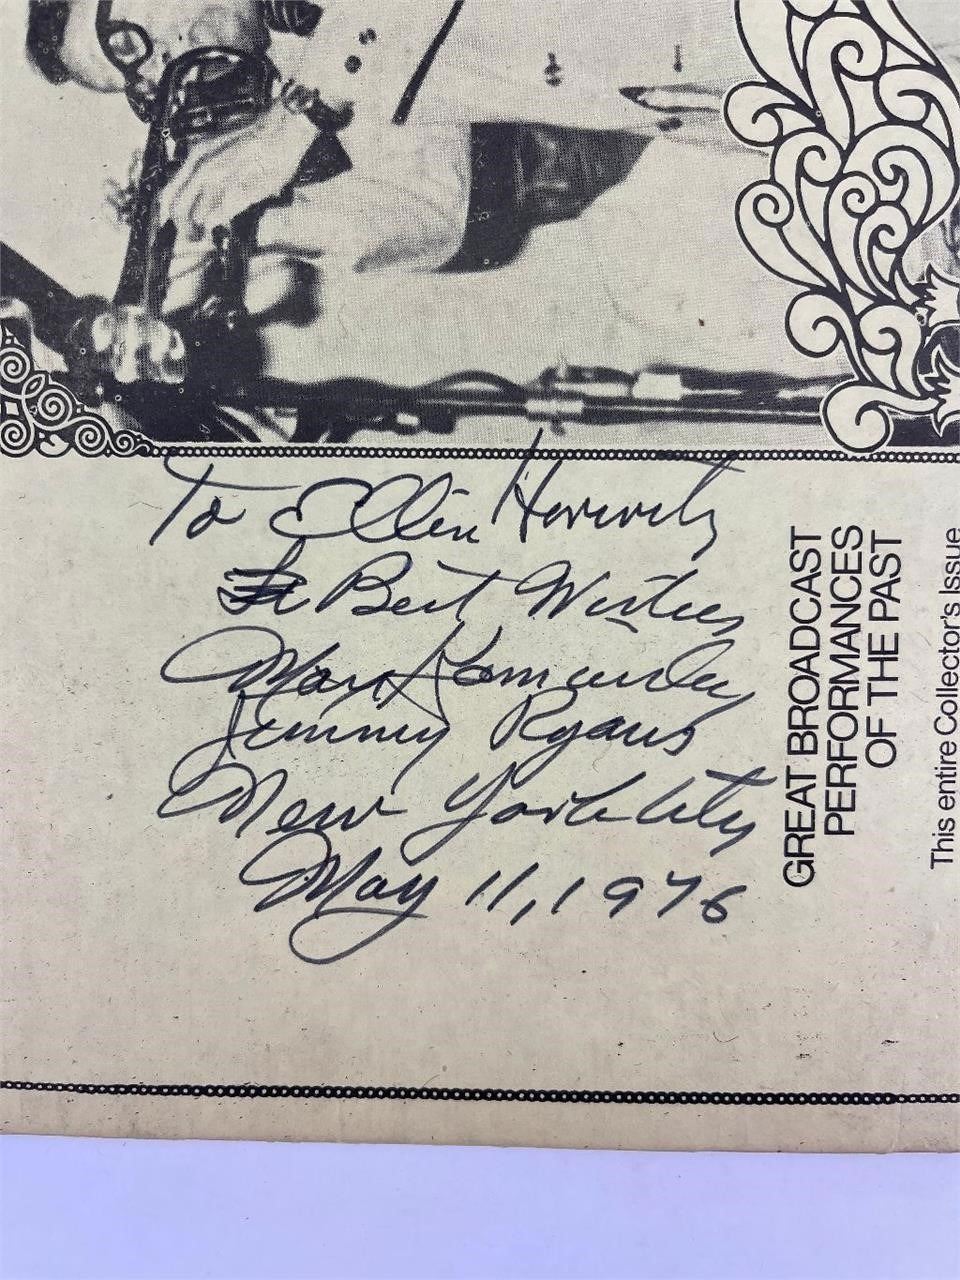 To Ellin Horwitz
Best Wishes
Max Kaminsky
Jimmy Ryans
New York City
May 11, 1976
GREAT BROADCAST
PERFORMANCES
OF THE PAST
This entire Collector's Issue